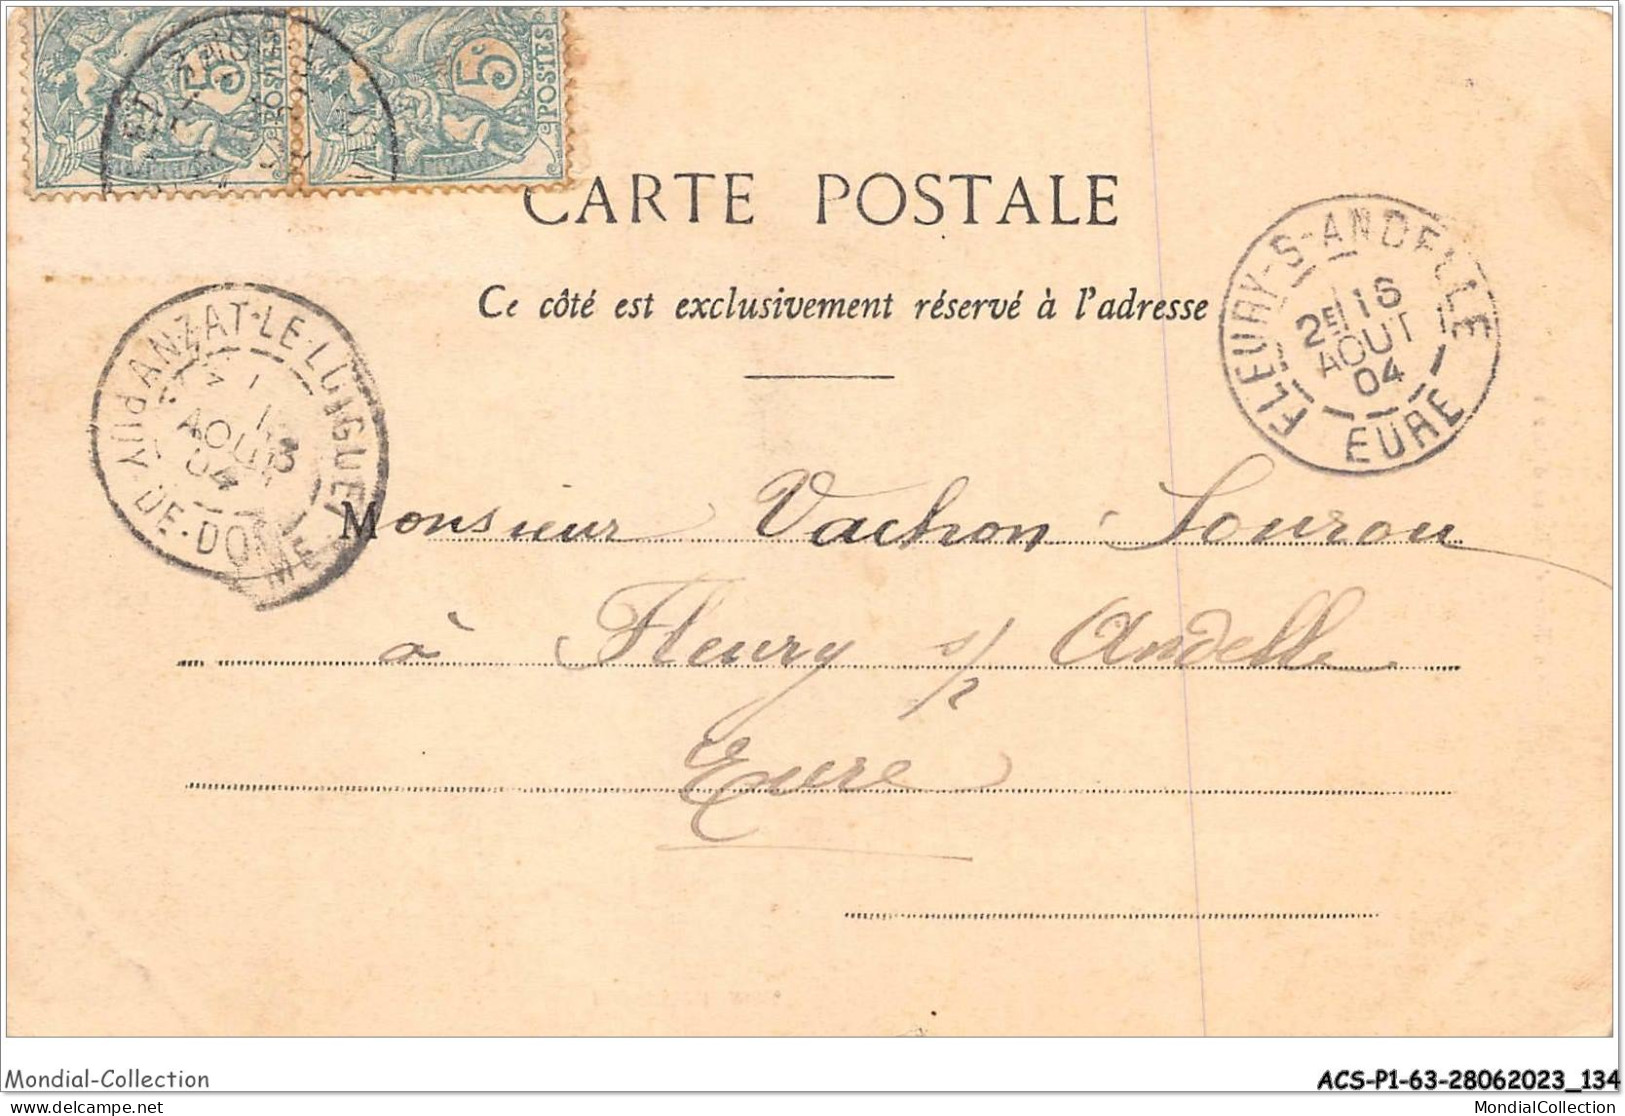 5c POSTES 5c POSTES
CARTE POSTALE
Ce côté est exclusivement réservé à l'adresse
FLEURY-S-ANDELLE
2E 16
AOUT
04
EURE
ANZAT-LE-LUGUET
AOUT
04
PUY-DE-DOME
Monsieur Vachon Sourou
à Fleury s/ Andelle
Eure
Mondial-Collection
ACS-P1-63-28062023_134
MondialCollection